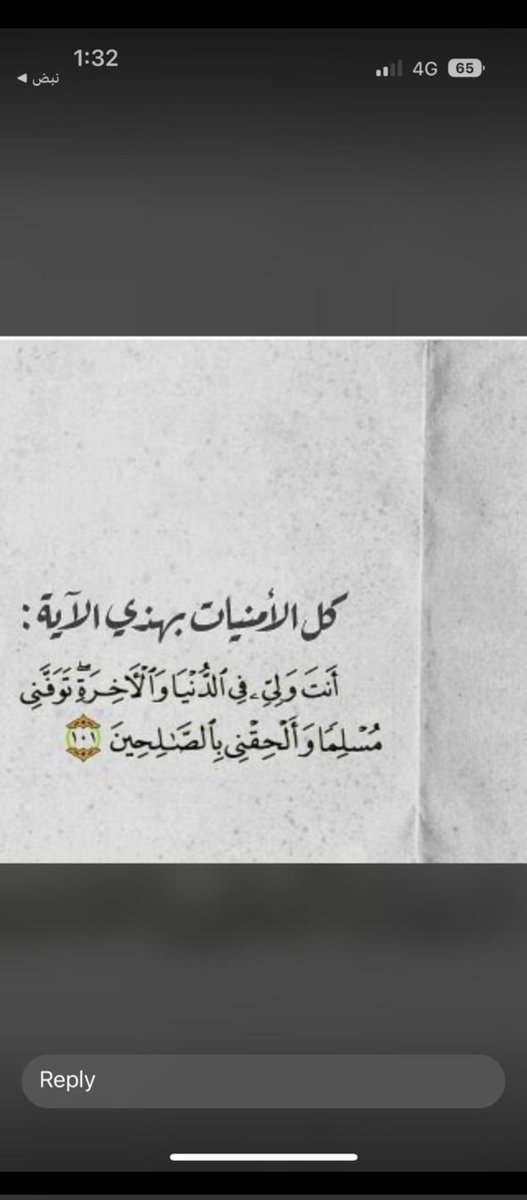 1:32
نبض ◀
4G
65
كل الأمنيات بهذي الآية :
أَنتَ وَلِيِّۦ فِي ٱلدُّنۡيَا وَٱلۡأٓخِرَةِۖ تَوَفَّنِي
مُسۡلِمٗا وَأَلۡحِقۡنِي بِٱلصَّٰلِحِينَ ١٠١
Reply